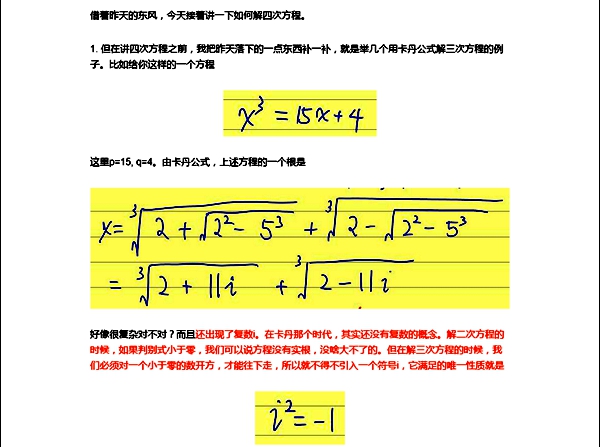 借着昨天的东风，今天接着讲一下如何解四次方程。
1. 但在讲四次方程之前，我把昨天落下的一点东西补一补，就是举几个用卡丹公式解三次方程的例
子。比如给你这样的一个方程
x³ = 15x + 4
这里p=15, q=4。由卡丹公式，上述方程的一个根是
x = ∛(2 + √(2² − 5³)) + ∛(2 − √(2² − 5³))
= ∛(2 + 11i) + ∛(2 − 11i)
好像很复杂对不对？而且还出现了复数i。在卡丹那个时代，其实还没有复数的概念。解二次方程的
时候，如果判别式小于零，我们可以说方程没有实根，没啥大不了的。但在解三次方程的时候，我
们必须对一个小于零的数开方，才能往下走，所以就不得不引入一个符号i，它满足的唯一性质就是
i² = −1